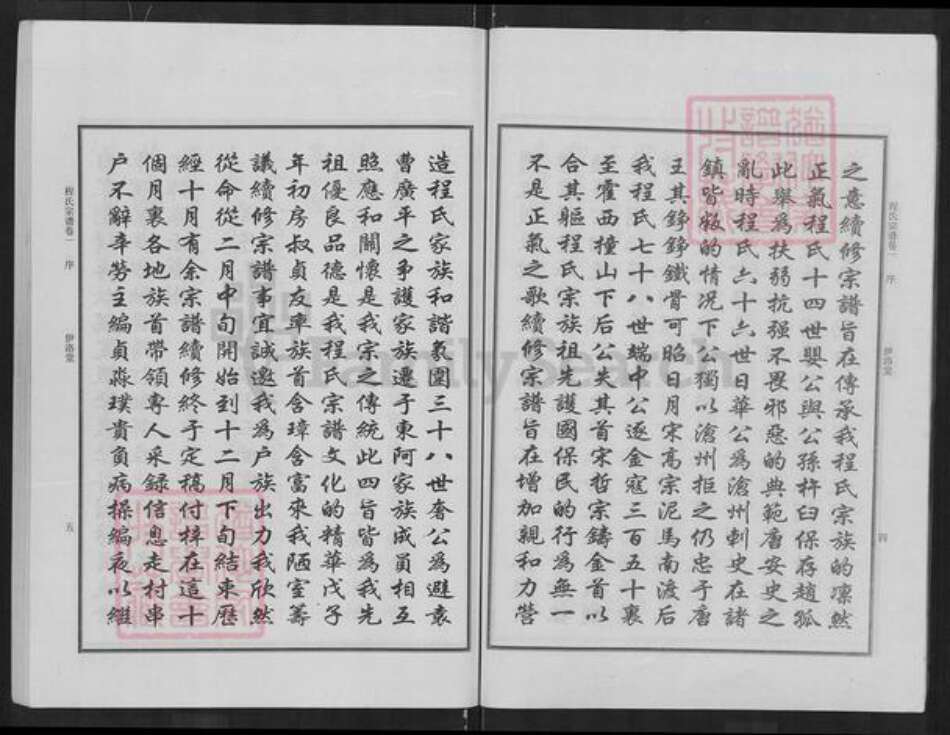 程氏宗谱卷一 序 伊洛堂 四
之意續修宗譜旨在傳承我程氏宗族的凛然
正氣程氏十四世嬰公與公孫杵臼保存趙孤
此舉為扶弱抗强不畏邪惡的典範唐安史之
亂時程氏六十六世日華公為滄州刺史在諸
鎮皆叛的情况下公獨以滄州拒之仍忠于唐
王其錚錚鐵骨可昭日月宋高宗泥馬南渡后
我程氏七十八世端中公逐金寇三百五十裏
至霍西撞山下后公失其首宋哲宗鑄金首以
合其軀程氏宗族祖先護國保民的行為無一
不是正氣之歌續修宗譜旨在增加親和力營
造程氏家族和諧氛圍三十八世奢公為避袁
曹廣平之争護家族遷于東阿家族成員相互
照應和關懷是我宗之傳統此四旨皆為我先
祖優良品德是我程氏宗譜文化的精華戊子
年初房叔貞友率族首含璋含富來我陋室籌
議續修宗譜事宜誠邀我為户族出力我欣然
從命從二月中旬開始到十二月下旬結束歷
經十月有余宗譜續修終于定稿付梓在這十
個月裏各地族首帶領專人采録信息走村串
户不辭辛勞主編貞淼璞貴負病操編夜以繼
程氏宗谱卷一 序 伊洛堂 五
FamilySearch